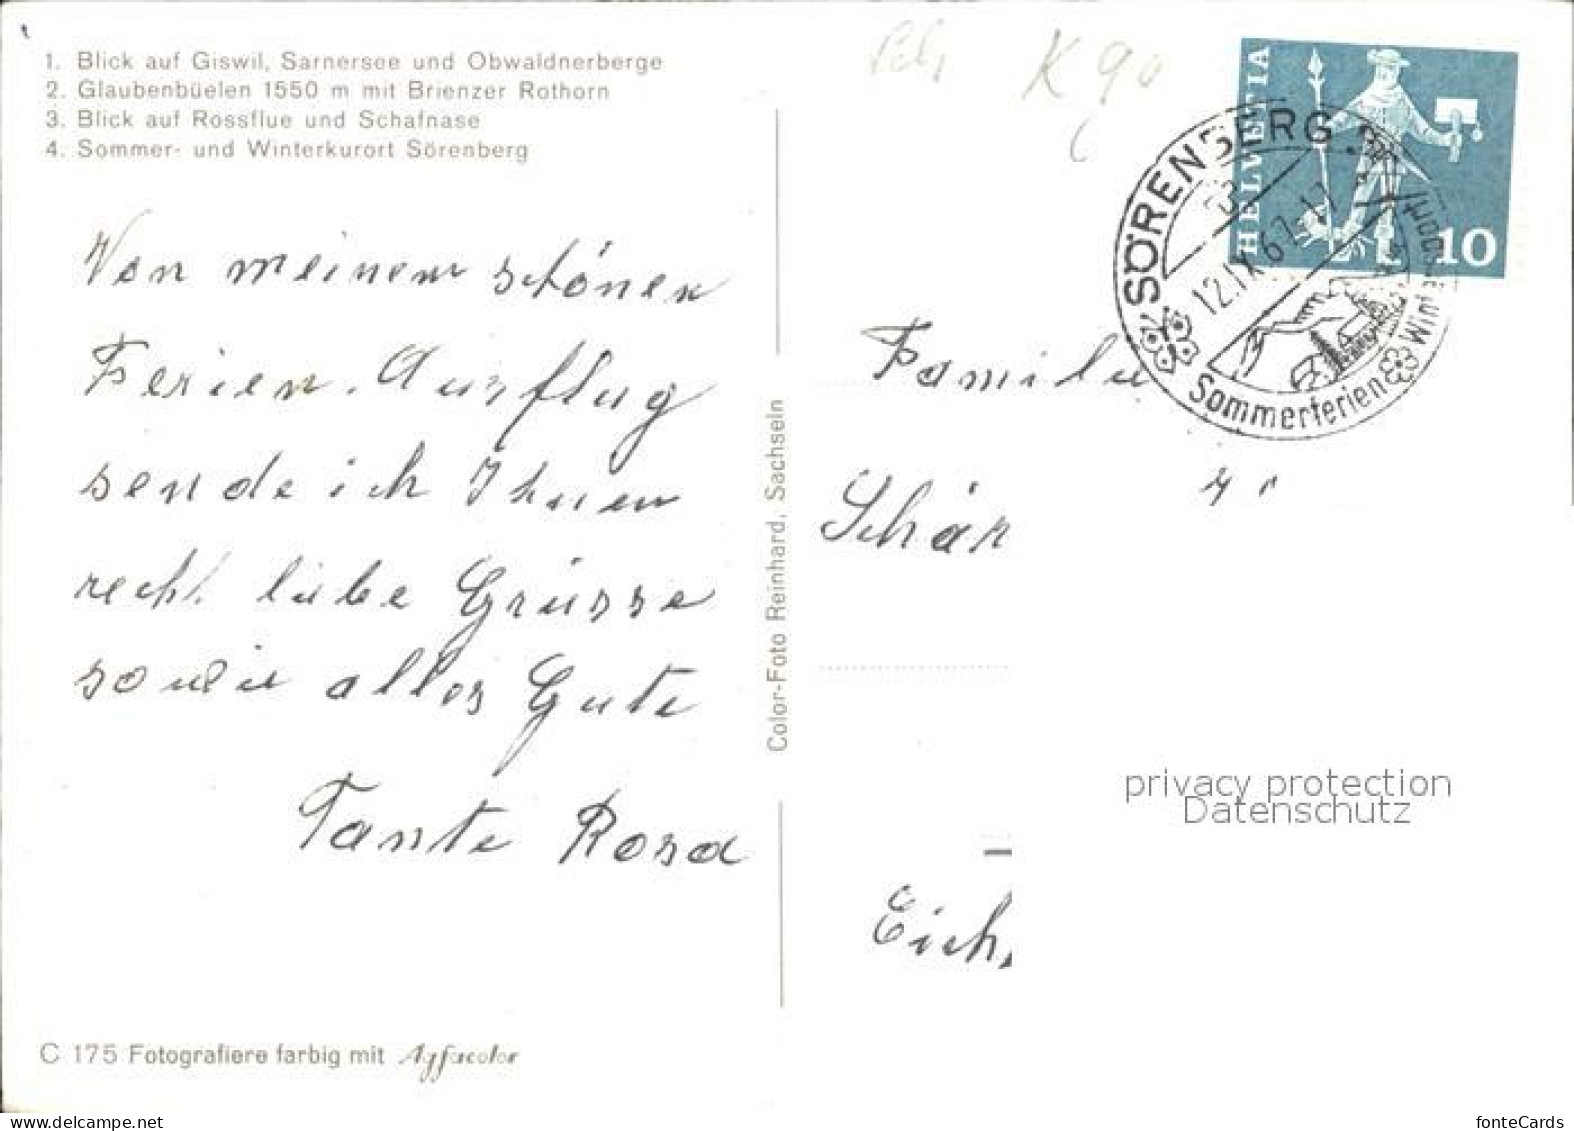 1. Blick auf Giswil, Sarnersee und Obwaldnerberge
2. Glaubenbüelen 1550 m mit Brienzer Rothorn
3. Blick auf Rossflue und Schafnase
4. Sommer- und Winterkurort Sörenberg
Von meinem schönen
Ferien. Ausflug
sende ich Ihnen
recht liebe Grüsse
sowie alles Gute
Tante Rosa
C 175 Fotografiere farbig mit Agfacolor
Color-Foto Reinhard, Sachseln
K 90
HELVETIA
10
SÖRENBERG
12.IX.67.17
Sommerferien
Familie
Schär
Eich
privacy protection
Datenschutz
www.delcampe.net
fonteCards